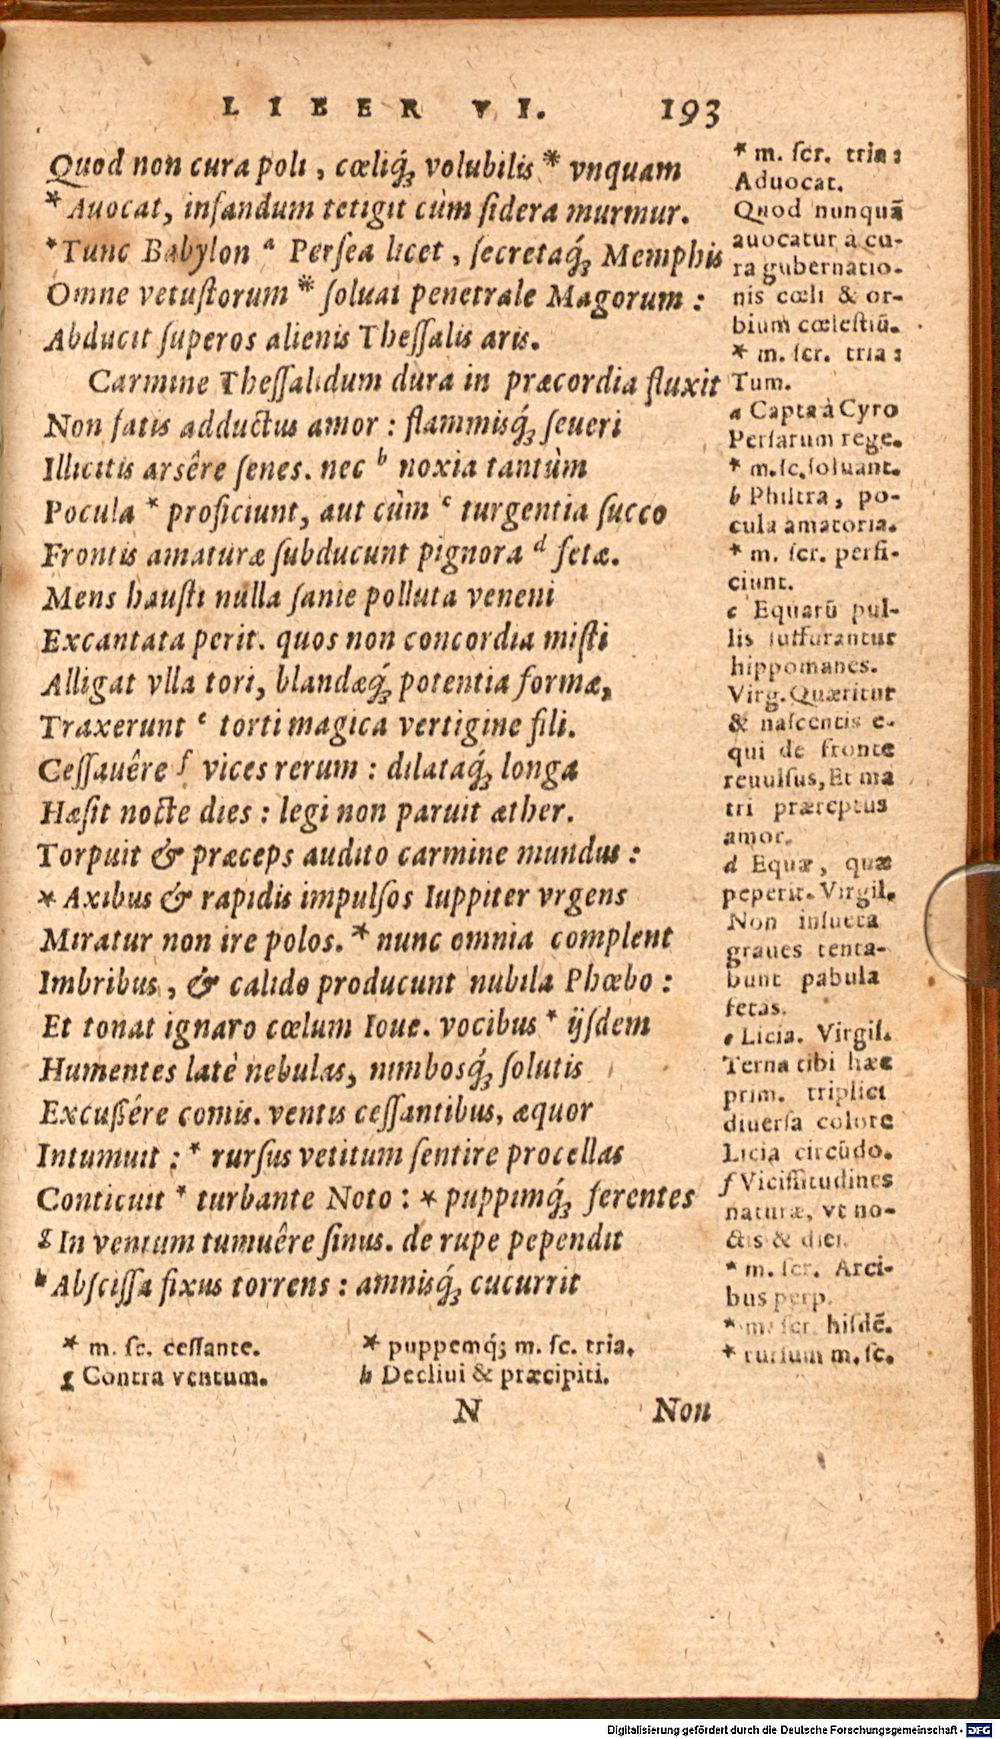 LIBER VI. 193
Quod non cura poli, cœliq́; volubilis * vnquam
* Auocat, infandum tetigit cùm sidera murmur.
* Tunc Babylon ᵃ Persea licet, secretaq́; Memphis
Omne vetustorum * soluat penetrale Magorum :
Abducit superos alienis Thessalis aris.
Carmine Thessalidum dura in præcordia fluxit
Non fatis adductus amor : flammisq́; seueri
Illicitis arsêre senes. nec ᵇ noxia tantùm
Pocula * proficiunt, aut cùm ᶜ turgentia succo
Frontis amaturæ subducunt pignora ᵈ fetæ.
Mens hausti nulla sanie polluta veneni
Excantata perit. quos non concordia misti
Alligat vlla tori, blandæq́; potentia formæ,
Traxerunt ᵉ torti magica vertigine fili.
Cessauêre ᶠ vices rerum : dilataq́; longa
Hæsit nocte dies : legi non paruit æther.
Torpuit & præceps audito carmine mundus :
* Axibus & rapidis impulsos Iuppiter vrgens
Miratur non ire polos. * nunc omnia complent
Imbribus, & calido producunt nubila Phœbo :
Et tonat ignaro cœlum Ioue. vocibus * ijsdem
Humentes latè nebulas, nimbosq́; solutis
Excussére comis. ventis cessantibus, æquor
Intumuit : * rursus vetitum sentire procellas
Conticuit * turbante Noto : * puppimq́; ferentes
ᵍ In ventum tumuêre sinus. de rupe pependit
ʰ Abscissa fixus torrens : amnisq́; cucurrit
* m. scr. tria :
Aduocat.
Quod nunquã
auocatur à cu-
ra gubernatio-
nis cœli & or-
bium cœlestiū.
* m. scr. tria :
Tum.
a Capta à Cyro
Persarum rege.
* m. sc. soluant.
b Philtra, po-
cula amatoria.
* m. scr. perfi-
ciunt.
c Equarū pul-
lis suffurantur
hippomanes.
Virg. Quæritur
& nascentis e-
qui de fronte
reuulsus, Et ma
tri præreptus
amor.
d Equæ, quæ
peperit. Virgil.
Non insueta
graues tenta-
bunt pabula
fetas.
e Licia. Virgil.
Terna tibi hæc
prim. triplici
diuersa colore
Licia circūdo.
f Vicissitudines
naturæ, vt no-
ctis & diei.
* m. scr. Arci-
bus perp.
* m. scr. hisdē.
* rursum m. sc.
* m. sc. cessante. * puppemq́; m. sc. tria.
g Contra ventum. h Decliui & præcipiti.
N Non
Digitalisierung gefördert durch die Deutsche Forschungsgemeinschaft - DFG